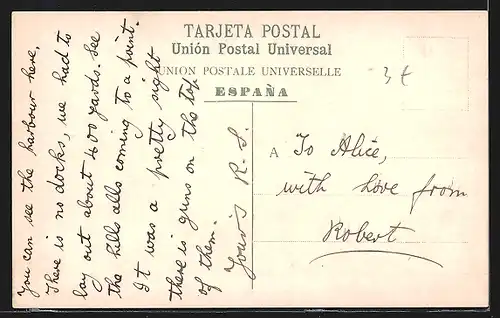 TARJETA POSTAL
Unión Postal Universal
UNION POSTALE UNIVERSELLE
ESPAÑA
3€
You can see the harbour here,
There is no docks, we had to
lay out about 400 yards. See
the hills alls coming to a point.
It was a pretty sight
there is guns on the top
of them.
Your's R. S.
A To Alice,
with Love from
Robert